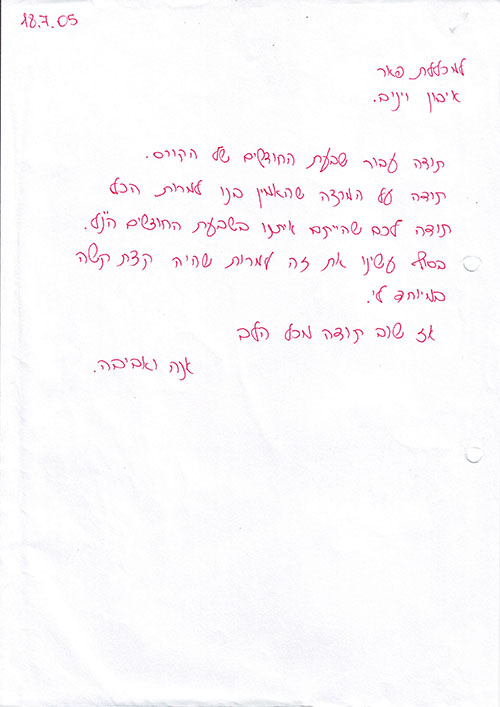 18.7.05
למכללת פאר
איבון ויניב.
תודה עבור שבעת החודשים של הקורס.
תודה על המרצה שהאמין בנו למרות הכל
תודה לכם שהייתם איתנו בשבעת החודשים הנ"ל.
בסוף עשינו את זה למרות שהיה קצת קשה
במיוחד לי.
אז שוב תודה מכל הלב
אנה ואביבה.